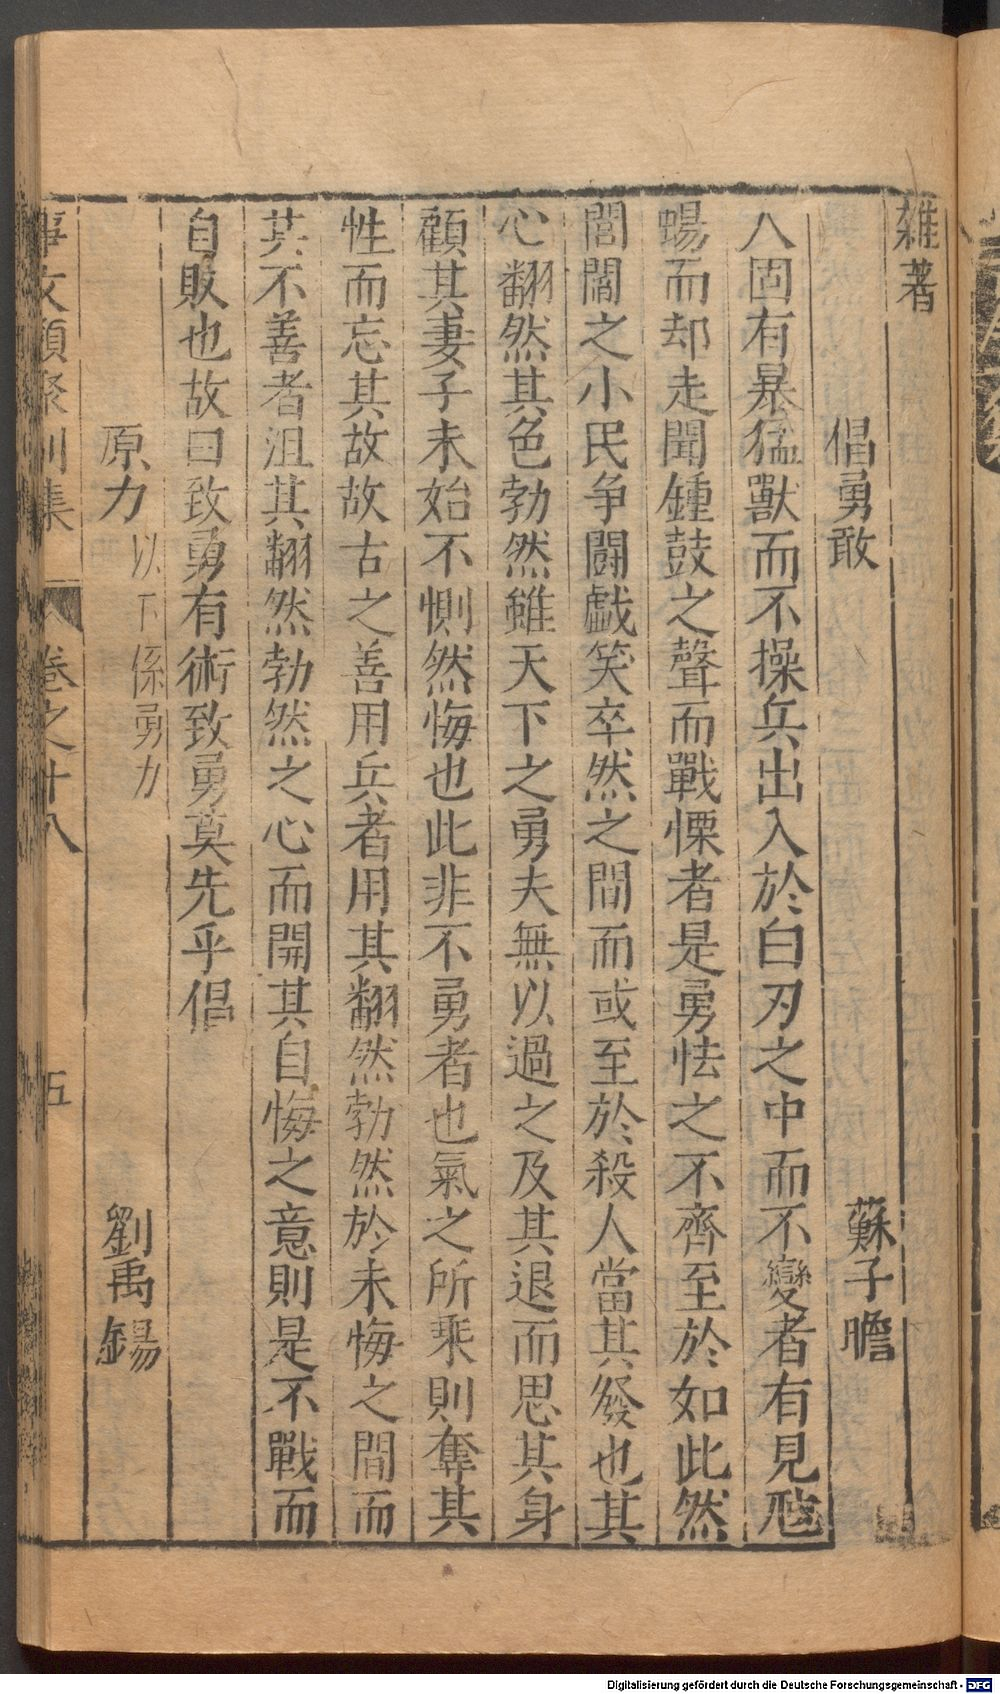 雜著
倡勇敢 蘇子瞻
人固有暴猛獸而不操兵出入於白刃之中而不變者有見虺
蜴而却走聞鍾鼓之聲而戰慄者是勇怯之不齊至於如此然
閭閻之小民争鬪戯笑卒然之間而或至於殺人當其發也其
心翻然其色勃然雖天下之勇夫無以過之及其退而思其身
顧其妻子未始不惻然悔也此非不勇者也氣之所乘則奪其
性而忘其故故古之善用兵者用其翻然勃然於未悔之間而
其不善者沮其翻然勃然之心而開其自悔之意則是不戰而
自敗也故曰致勇有術致勇莫先乎倡
原力 以下係勇力 劉禹錫
事文類聚別集 卷之十八 五
Digitalisierung gefördert durch die Deutsche Forschungsgemeinschaft - DFG